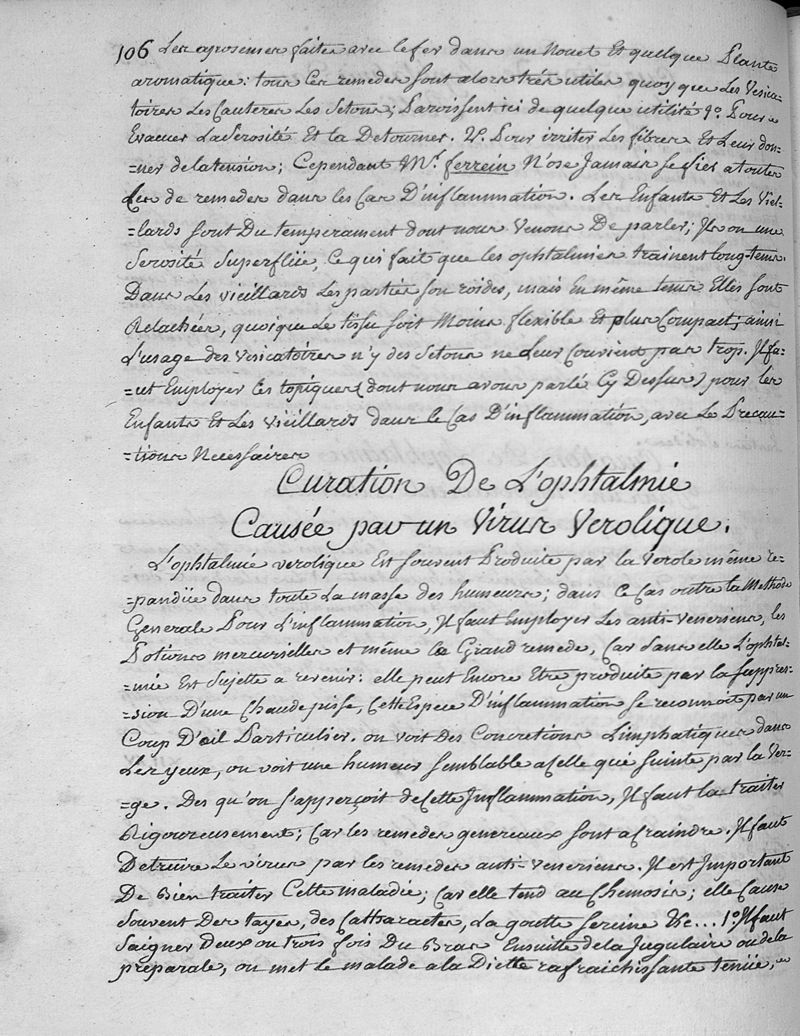 106 Les arosemens faites avec le fer dans un Nouet Et quelque Plante
aromatique: tous Ces remedes sont alors trés utiles quoy que Les Vesica-
toires Les Cauteres Les Setons; Paroissent ici de quelque utilité 1o. Pour
Evacuer La Serosité Et la Detourner. 2o. Pour irriter Les fibres Et Leur don-
=ner de la tension; Cependant Mr. ferrein N'ose Jamais se fier a toutes
Ces de remedes dans les Cas D'inflammation. Les Enfants Et Les Viel-
=lards sont Du temperament dont nous Venons De parler; Ils on une
Serosité Superflüe, Ce qui fait que les ophtalmies trainent long-tems.
Dans Les vieillards Les parties son roides, mais En même tems Elles sont
Relachées, quoique Le tissu soit Moins flexible Et plus Compact; ainsi
L'usage des vesicatoires n'y des Setons ne Leur Convient pas trop. Il fa-
=ut Employer Les topiques (dont nous avons parlé Cy Dessus) pour les
Enfants Et Les vieillards dans le Cas D'inflammation, avec Les Precau-
=tions Necessaires
Curation De L'ophtalmie
Causée par un Virus Verolique.
L'ophtalmie verolique Est souvent Produite par la Verole même re-
=pandüe dans toute La masse des humeurs; dans Ce Cas outre la Methode
Generale Pour L'inflammation, Il faut Employer Les anti-Veneriens, les
Potions mercurielles et même la Grand remede, Car sans elle L'ophtal-
=mie Est Sujette a revenir: elle peut Encore Etre produite par la suppres-
=sion D'une Chaudepisse, Cette Espece D'inflammation se reconnoit par un
Coup D'œil Particulier. on voit des Concretions Limphatiques dans
Les yeux, on voit une humeur semblable a Celle que suinte par la Ver-
=ge. Des qu'on s'apperçoit de Cette Inflammation, Il faut la traiter
Rigoureusement; Car les remedes genereaux sont a craindre. Il faut
Detruire Le virus par les remedes anti-Veneriens. Il est Important
De Bien traiter Cette maladie; Car elle tend au Chemosis; elle Cause
Souvent Des tayes, des Catharactes, La goutte sereine &c... 1o. Il faut
Saigner Deux ou trois fois Du Bras Ensuite de la Jugulaire ou de la
preparate, on met le malade a la Diette rafraichissante tenüe,